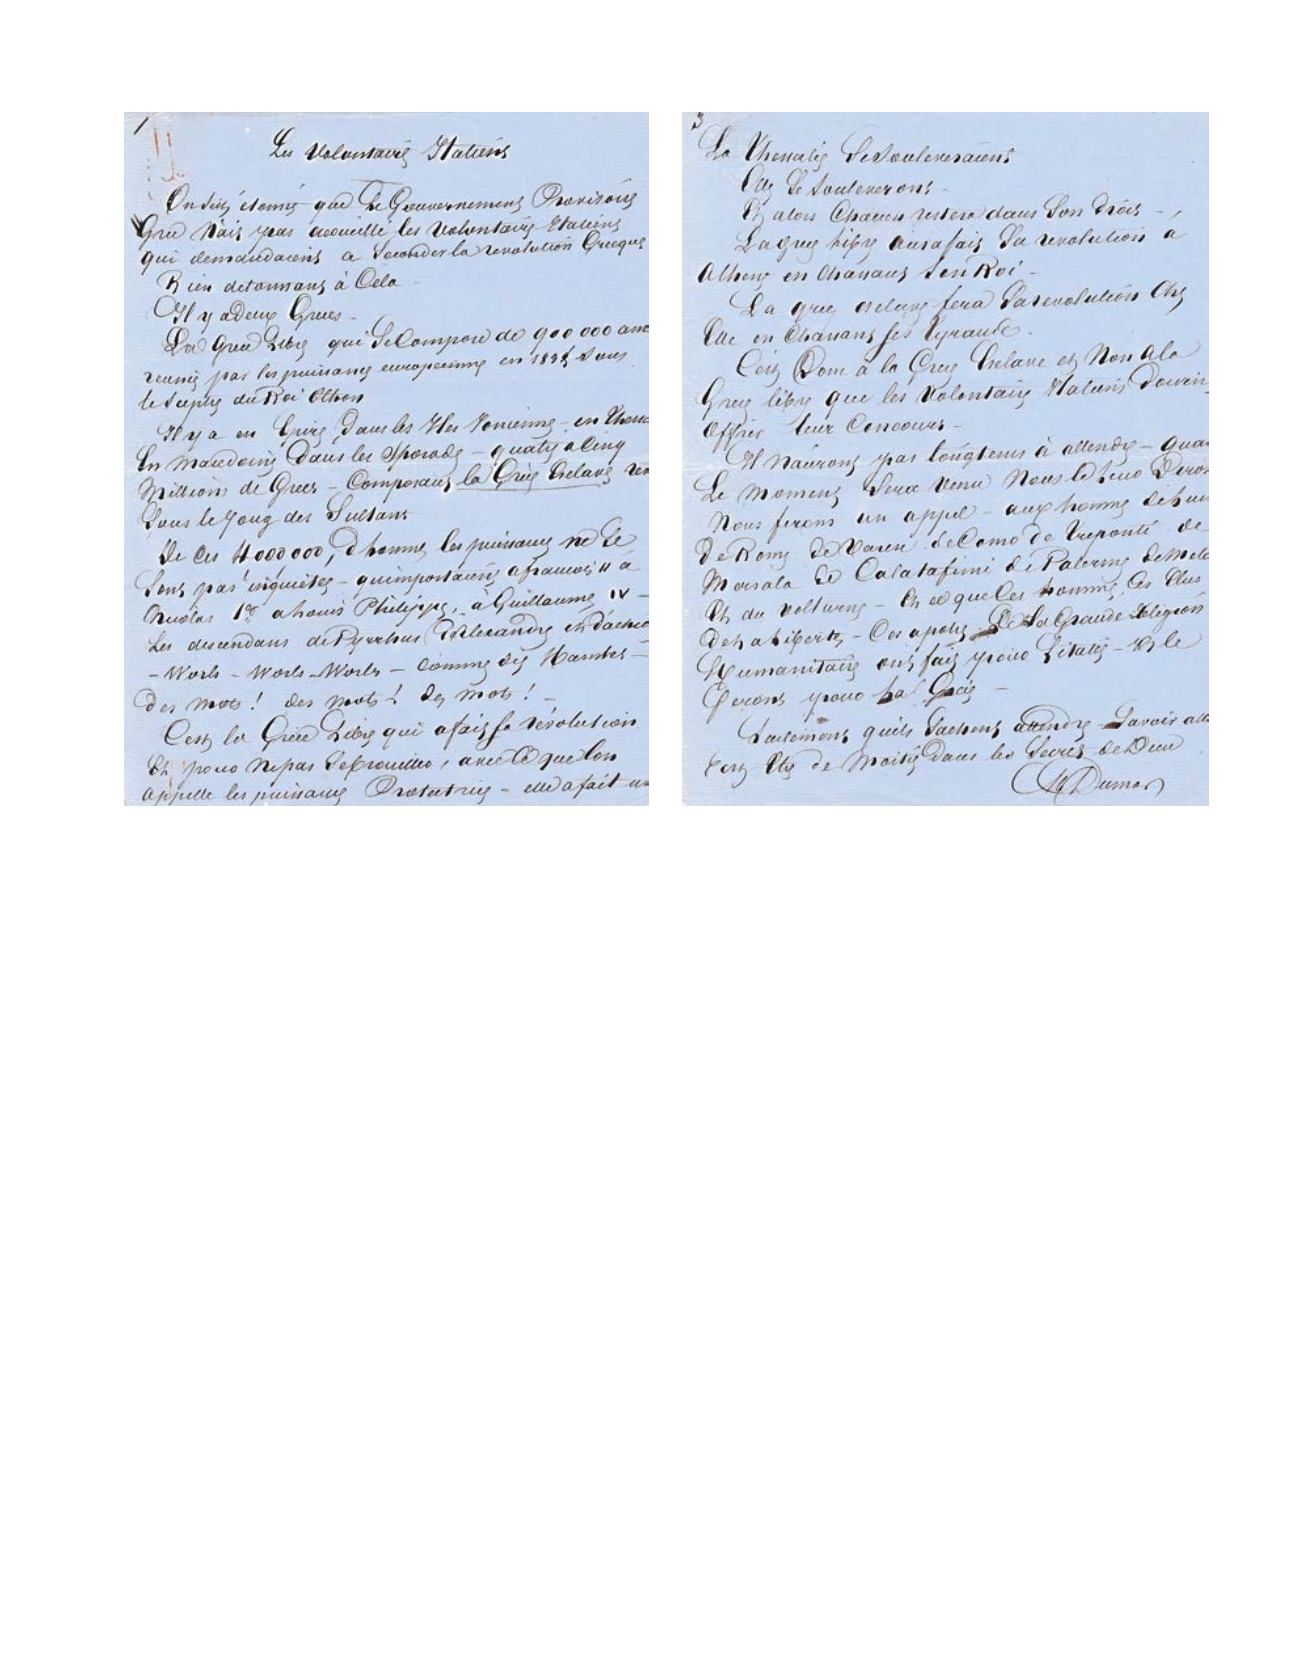 1
Les Volontaires Italiens
On s'est étonné que le Gouvernement Provisoire
Grec n'ait pas accueilli les volontaires Italiens
qui demandaient a seconder la revolution Grecque
Rien detonnant à Cela
Il y a deux Grèces -
La Grèce Libre qui se Compose de 900 000 ame
reunis par les puissances européennes en sous
le sceptre du Roi Othon
Il y a en Epire, dans les Iles Ioniennes - en Thess
En Macedoine dans les Sporades - quatre a Cinq
Millions de Grecs - Composant la Grèce Esclave
Sous le Joug des Sultans
De ces 4 000 000, d'hommes les puissances ne se
sont pas inquiétés - qu'importaient a francois II a
Nicolas 1er a Louis Philippe, à Guillaume IV -
Les descendans de Pyrrhus d'Alexandre et d'ache
- Words - Words - Words - Comme dit Hamlet -
des mots! des mots! des mots! -
C'est la Grèce Libre qui a fait sa révolution
Et pour ne pas se brouiller, avec Ce que l'on
appelle les puissances Protectrices - elle a fait un
3
La Thessalie se souleveraient
Elles se souleveront -
Et alors Chacun restera dans son droit -
La grece libre aura fait sa revolution a
Athenes en Chassant son Roi -
La grece esclave fera sa revolution Chez
Elle en Chassant ses Tyrans.
C'est Donc à la Grece Esclave et Non a la
Grece libre que les Volontaires Italiens doiven
Offrir leur Concours -
Il n'auront pas longtems à attendre - quan
Le moment sera venu Nous le leur Diron
Nous ferons un appel - aux hommes de
de Rome de Varese de Como de Treponti de
Marsala de Calatafimi de Palerme de Mela
Et du Volturne - Et ce que Ces hommes, Ces Elus
de la Liberté - Ces apotres De la Grande Religion
Humanitaire ont fait pour l'italie - Ils le
feront pour la Grèce -
Seulement qu'ils sachent attendre - Savoir atte
c'est Etre de Moitié dans les Secrets de Dieu
Al Dumas